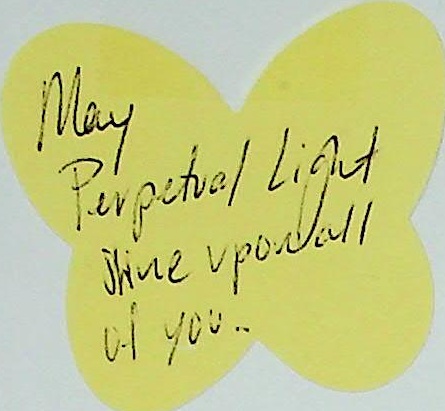 May
Perpetual Light
shine upon all
of you..